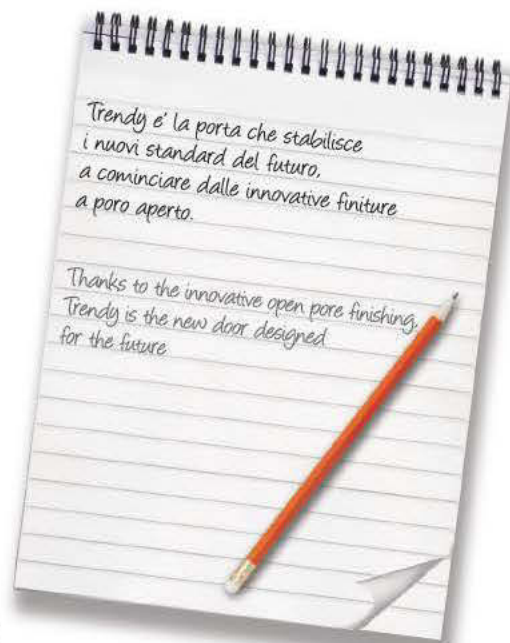 Trendy e' la porta che stabilisce
i nuovi standard del futuro,
a cominciare dalle innovative finiture
a poro aperto.
Thanks to the innovative open pore finishing,
Trendy is the new door designed
for the future